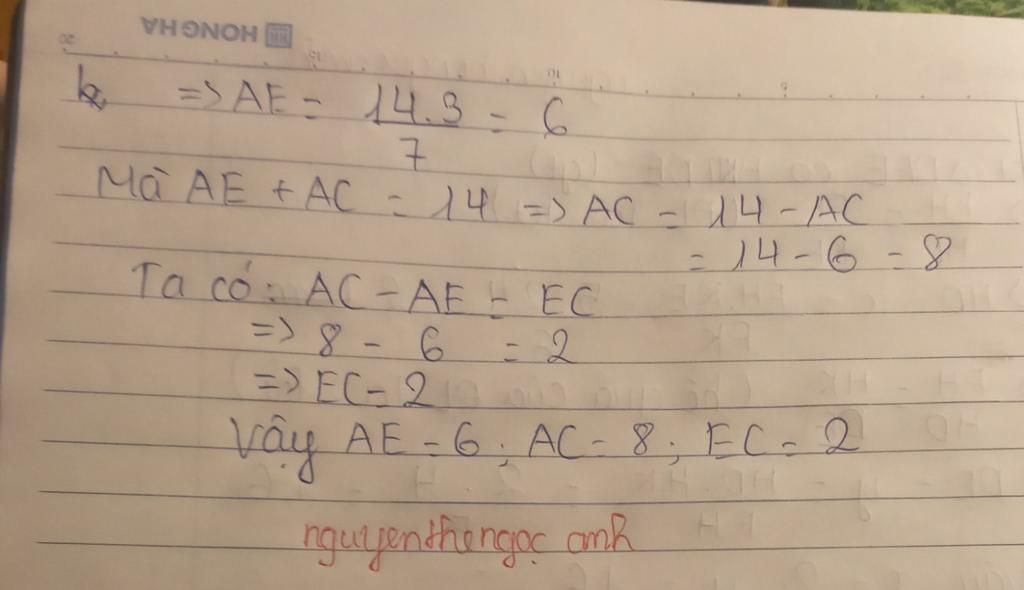 HONG HA
20 15 10 5
=> AE = 14.3 / 7 = 6
Mà AE + AC = 14 => AC = 14 - AC
= 14 - 6 = 8
Ta có: AC - AE = EC
=> 8 - 6 = 2
=> EC = 2
Vậy AE = 6; AC = 8; EC = 2
nguyenthengọc anh